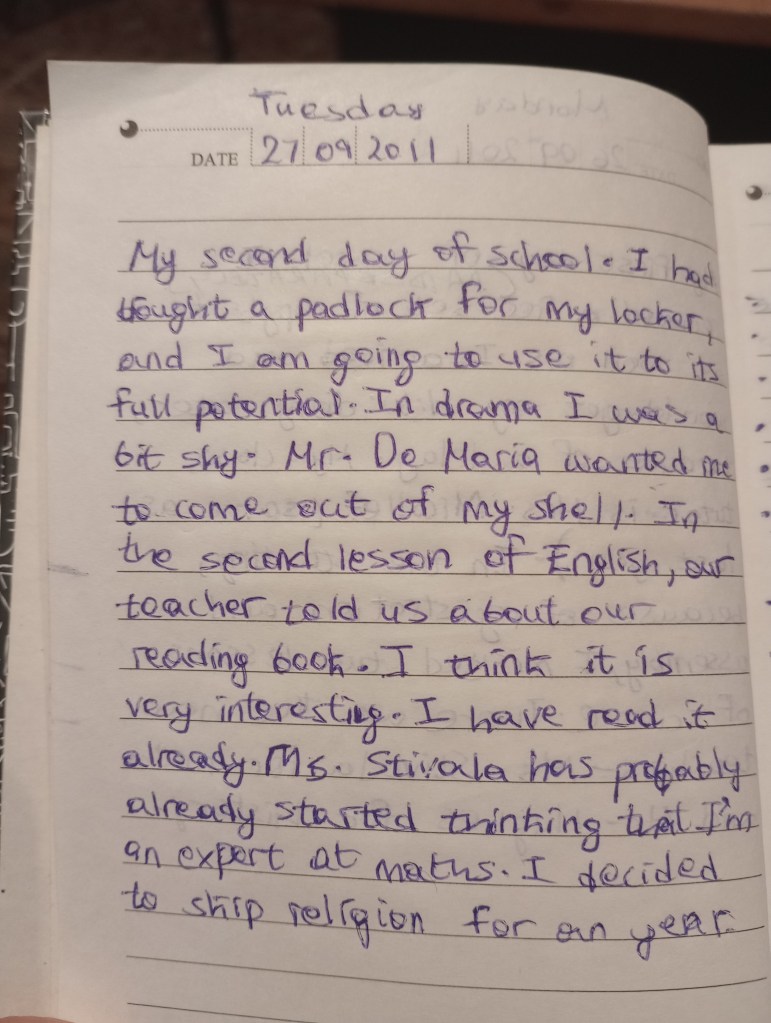 Tuesday
DATE 27 09 2011
My second day of school. I had
bought a padlock for my locker,
and I am going to use it to its
full potential. In drama I was a
bit shy. Mr. De Maria wanted me
to come out of my shell. In
the second lesson of English, our
teacher told us about our
reading book. I think it is
very interesting. I have read it
already. Ms. Stivala has probably
already started thinking that I'm
an expert at maths. I decided
to skip religion for an year.